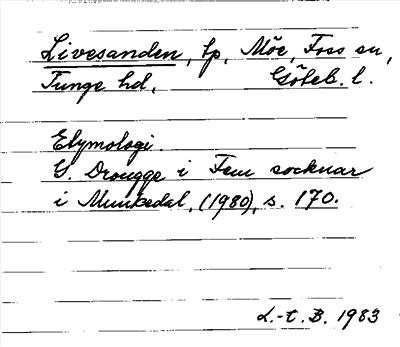 Livesanden, tp, Möe, Foss sn,
Tunge hd, Göteb. l.
Etymologi.
G. Drougge i Fem socknar
i Munkedal, (1980), s. 170.
L.-t. B. 1983